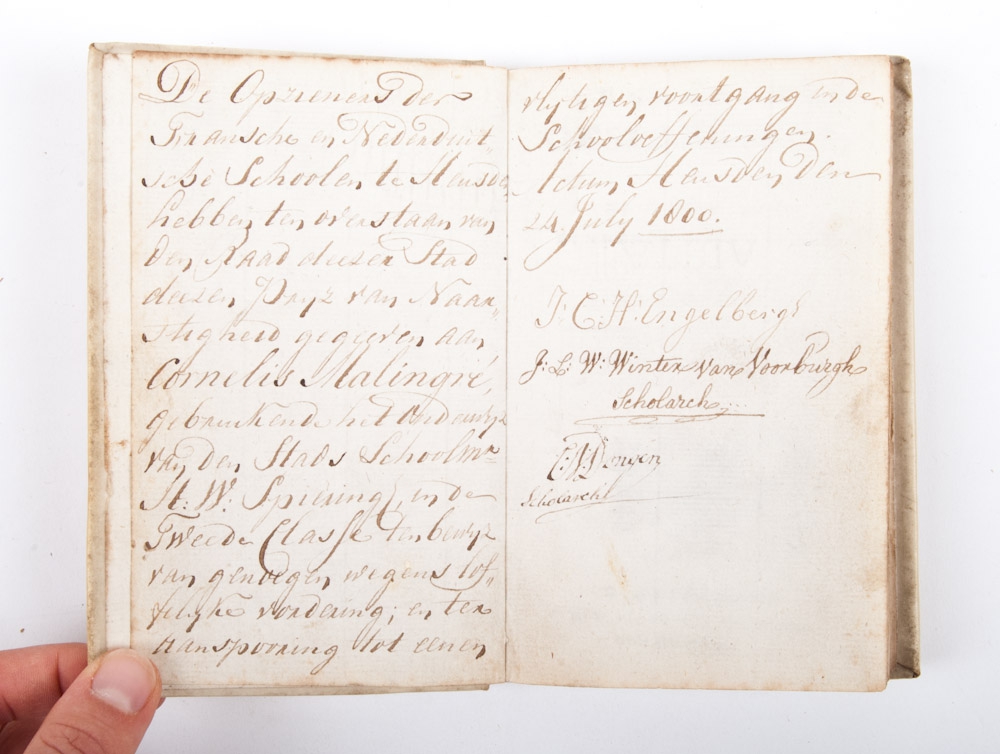 De Opzieners der
Fransche en Nederduit„
sche Schoolen te Heusde„
hebben ten overstaan van
den Raad deezer Stad
deezen Pryz van Naar„
stigheid gegeeven aan
Cornelis Malingré,
gebruikende het Onderwyz
van den Stads Schoolmr
H: W: Spiering, in de
Tweede Classe ten bewyze
van genoegen wegens lof„
felyke vordering; en ter
aanspooring tot eenen
vlytigen voortgang in de
Schooloeffeningen.
Actum Heusden den
24 July 1800.
J: C: H: Engelbergs
J: L: W: Winter van Voorburgh
Scholarch
Dongen
Scholarch